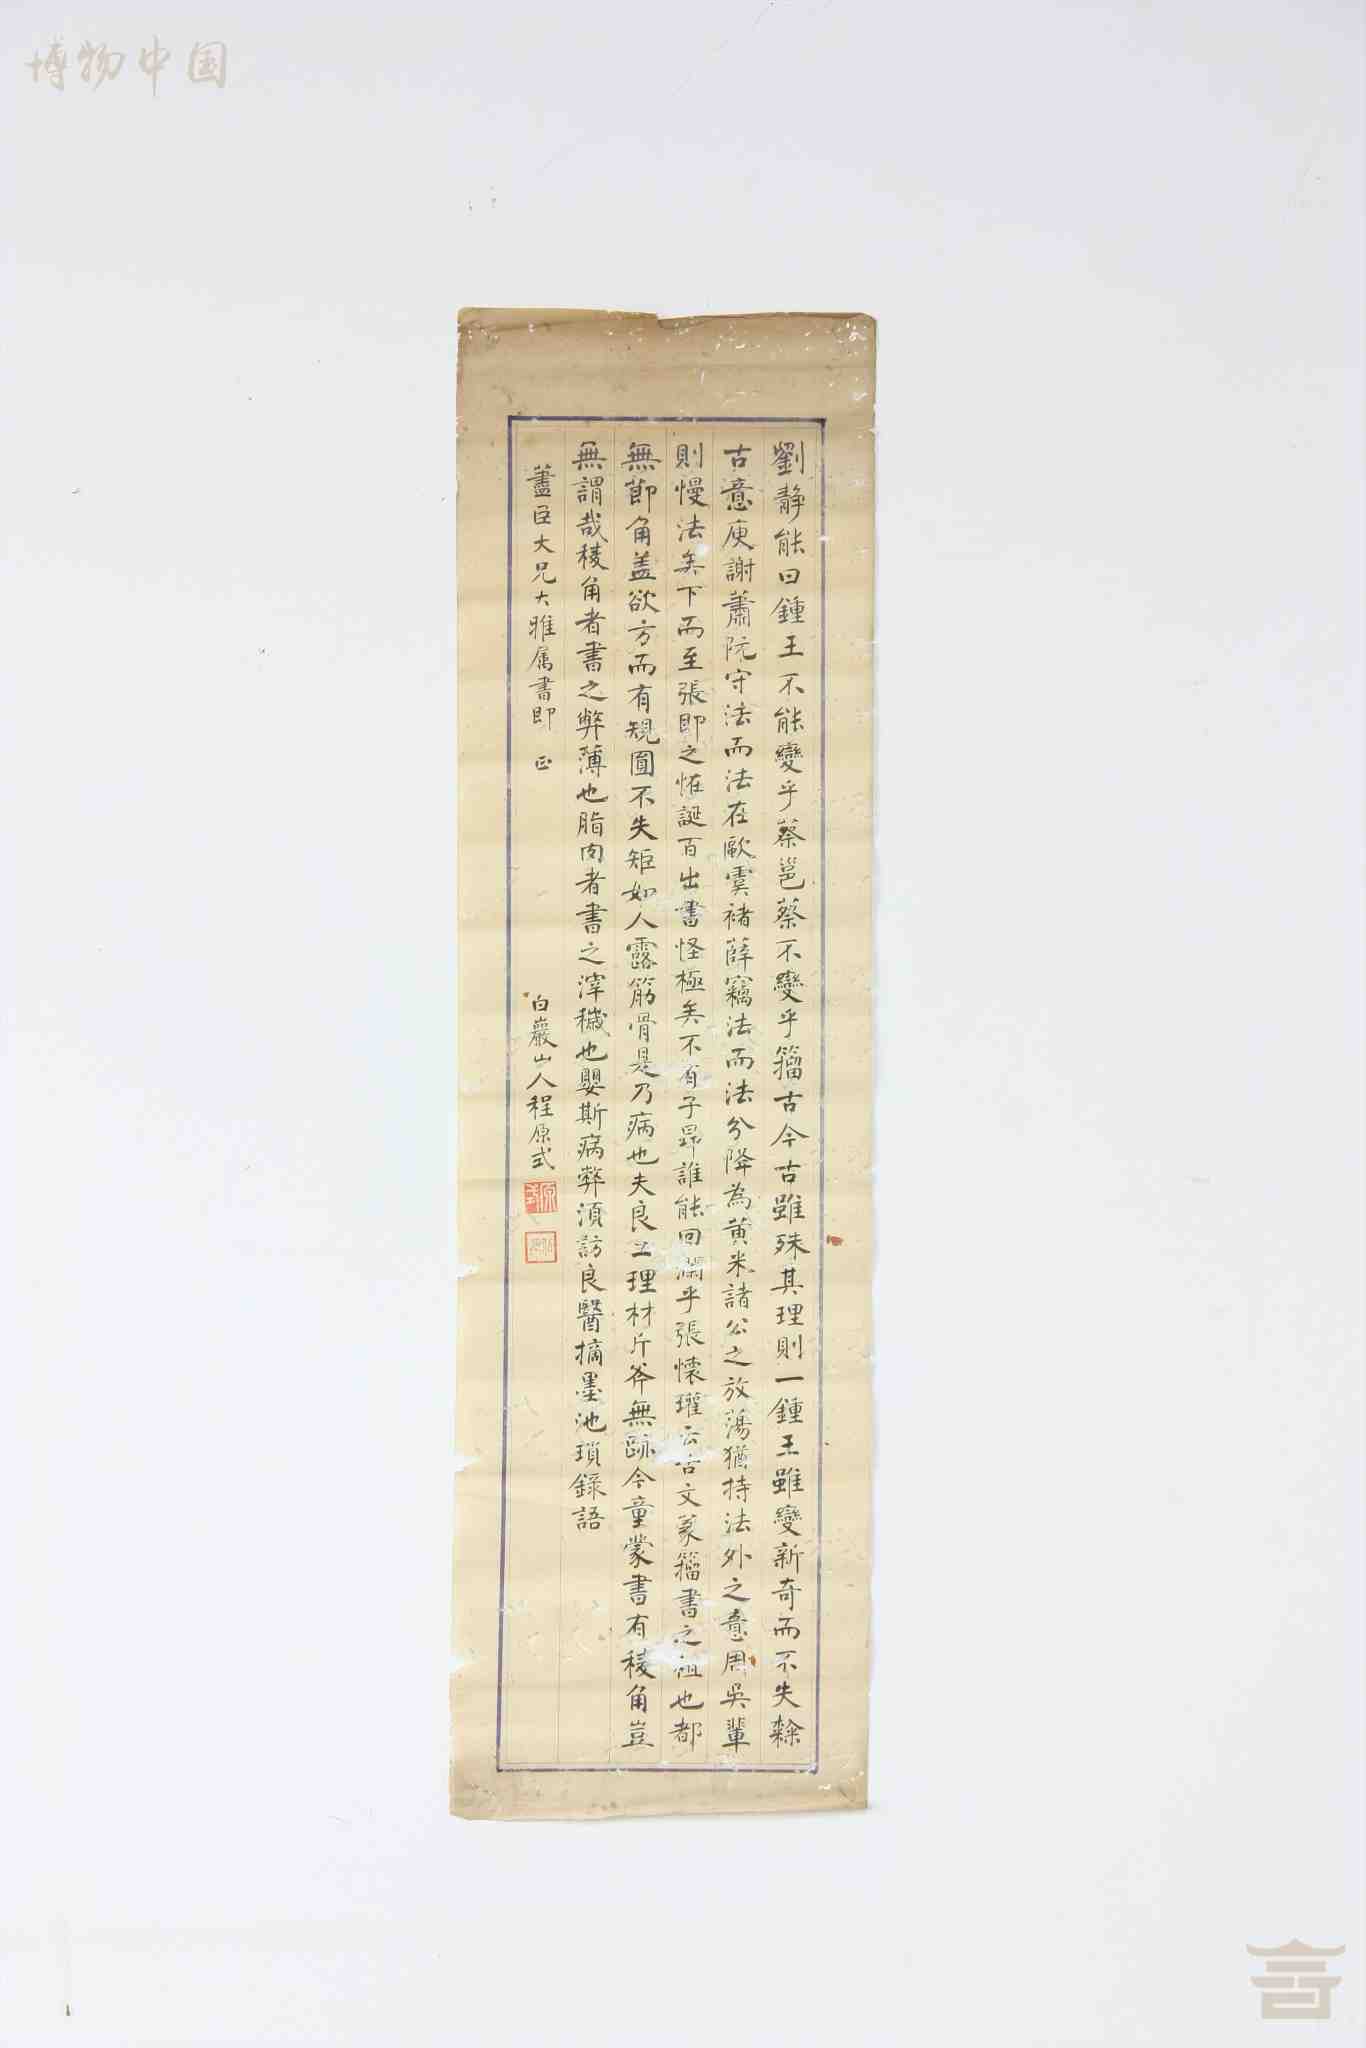 博物中国
劉靜能曰鍾王不能變乎蔡邕蔡不變乎籀古今古雖殊其理則一鍾王雖變新奇而不失隸
古意庾謝蕭阮守法而法在歐虞褚薛竊法而法分降為黄米諸公之放蕩猶持法外之意周吳輩
則慢法矣下而至張即之怪誕百出書怪極矣不有子昻誰能回瀾乎張懷瓘云古文篆籀書之祖也都
無節角盖欲方而有規圓不失矩如人露筋骨是乃病也夫良工理材斤斧無跡今童蒙書有稜角豈
無謂哉稜角者書之弊薄也脂肉者書之滓穢也嬰斯病弊須訪良醫摘墨池瑣錄語
藎臣大兄大雅属書即 正
白巖山人程原式